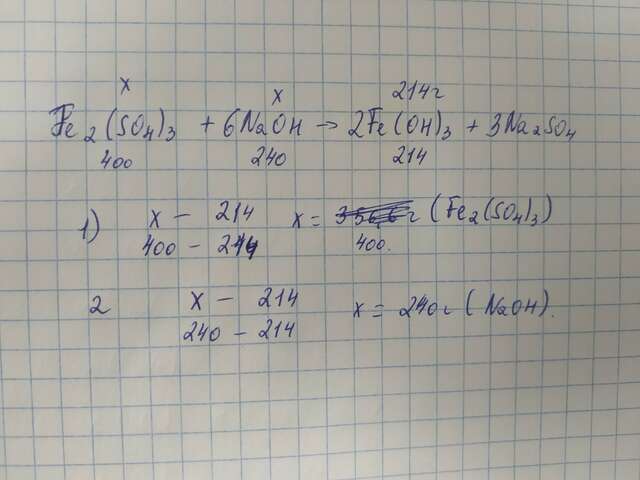 x x 214г
Fe2(SO4)3 + 6NaOH → 2Fe(OH)3 + 3Na2SO4
400 240 214
1) x - 214 x = г (Fe2(SO4)3)
400 - 214 400.
2 x - 214 x = 240г (NaOH).
240 - 214